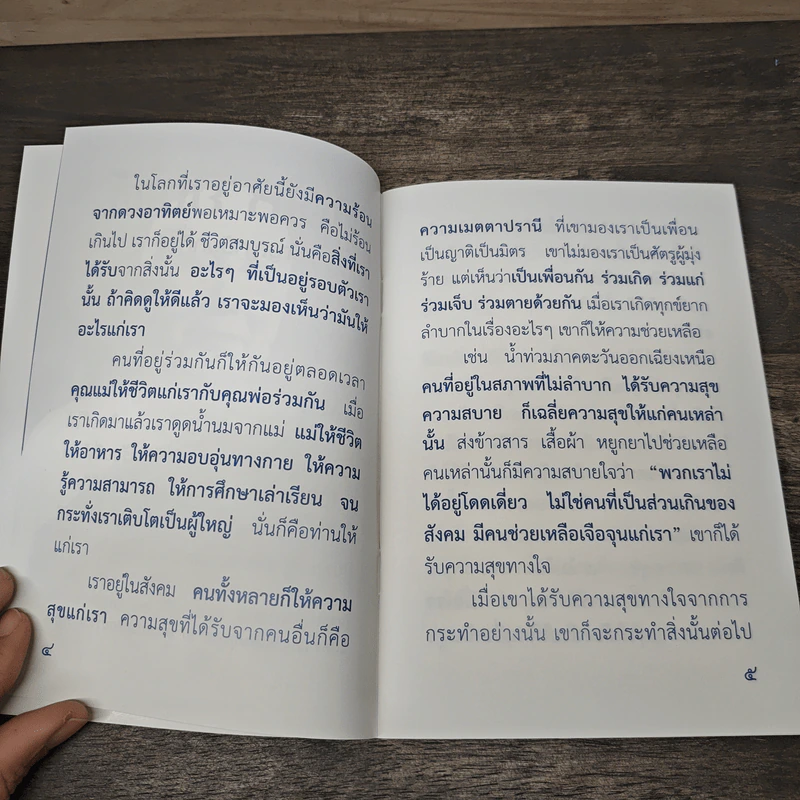 ในโลกที่เราอยู่อาศัยนี้ยังมีความร้อน
จากดวงอาทิตย์พอเหมาะพอควร คือไม่ร้อน
เกินไป เราก็อยู่ได้ ชีวิตสมบูรณ์ นั่นคือสิ่งที่เรา
ได้รับจากสิ่งนั้น อะไรๆ ที่เป็นอยู่รอบตัวเรา
นั้น ถ้าคิดดูให้ดีแล้ว เราจะมองเห็นว่ามันให้
อะไรแก่เรา
คนที่อยู่ร่วมกันก็ให้กันอยู่ตลอดเวลา
คุณแม่ให้ชีวิตแก่เรากับคุณพ่อร่วมกัน เมื่อ
เราเกิดมาแล้วเราดูดน้ำนมจากแม่ แม่ให้ชีวิต
ให้อาหาร ให้ความอบอุ่นทางกาย ให้ความ
รู้ความสามารถ ให้การศึกษาเล่าเรียน จน
กระทั่งเราเติบโตเป็นผู้ใหญ่ นั่นก็คือท่านให้
แก่เรา
เราอยู่ในสังคม คนทั้งหลายก็ให้ความ
สุขแก่เรา ความสุขที่ได้รับจากคนอื่นก็คือ
๔
ความเมตตาปรานี ที่เขามองเราเป็นเพื่อน
เป็นญาติเป็นมิตร เขาไม่มองเราเป็นศัตรูผู้มุ่ง
ร้าย แต่เห็นว่าเป็นเพื่อนกัน ร่วมเกิด ร่วมแก่
ร่วมเจ็บ ร่วมตายด้วยกัน เมื่อเราเกิดทุกข์ยาก
ลำบากในเรื่องอะไรๆ เขาก็ให้ความช่วยเหลือ
เช่น น้ำท่วมภาคตะวันออกเฉียงเหนือ
คนที่อยู่ในสภาพที่ไม่ลำบาก ได้รับความสุข
ความสบาย ก็เฉลี่ยความสุขให้แก่คนเหล่า
นั้น ส่งข้าวสาร เสื้อผ้า หยูกยาไปช่วยเหลือ
คนเหล่านั้นก็มีความสบายใจว่า “พวกเราไม่
ได้อยู่โดดเดี่ยว ไม่ใช่คนที่เป็นส่วนเกินของ
สังคม มีคนช่วยเหลือเจือจุนแก่เรา” เขาก็ได้
รับความสุขทางใจ
เมื่อเขาได้รับความสุขทางใจจากการ
กระทำอย่างนั้น เขาก็จะกระทำสิ่งนั้นต่อไป
๕